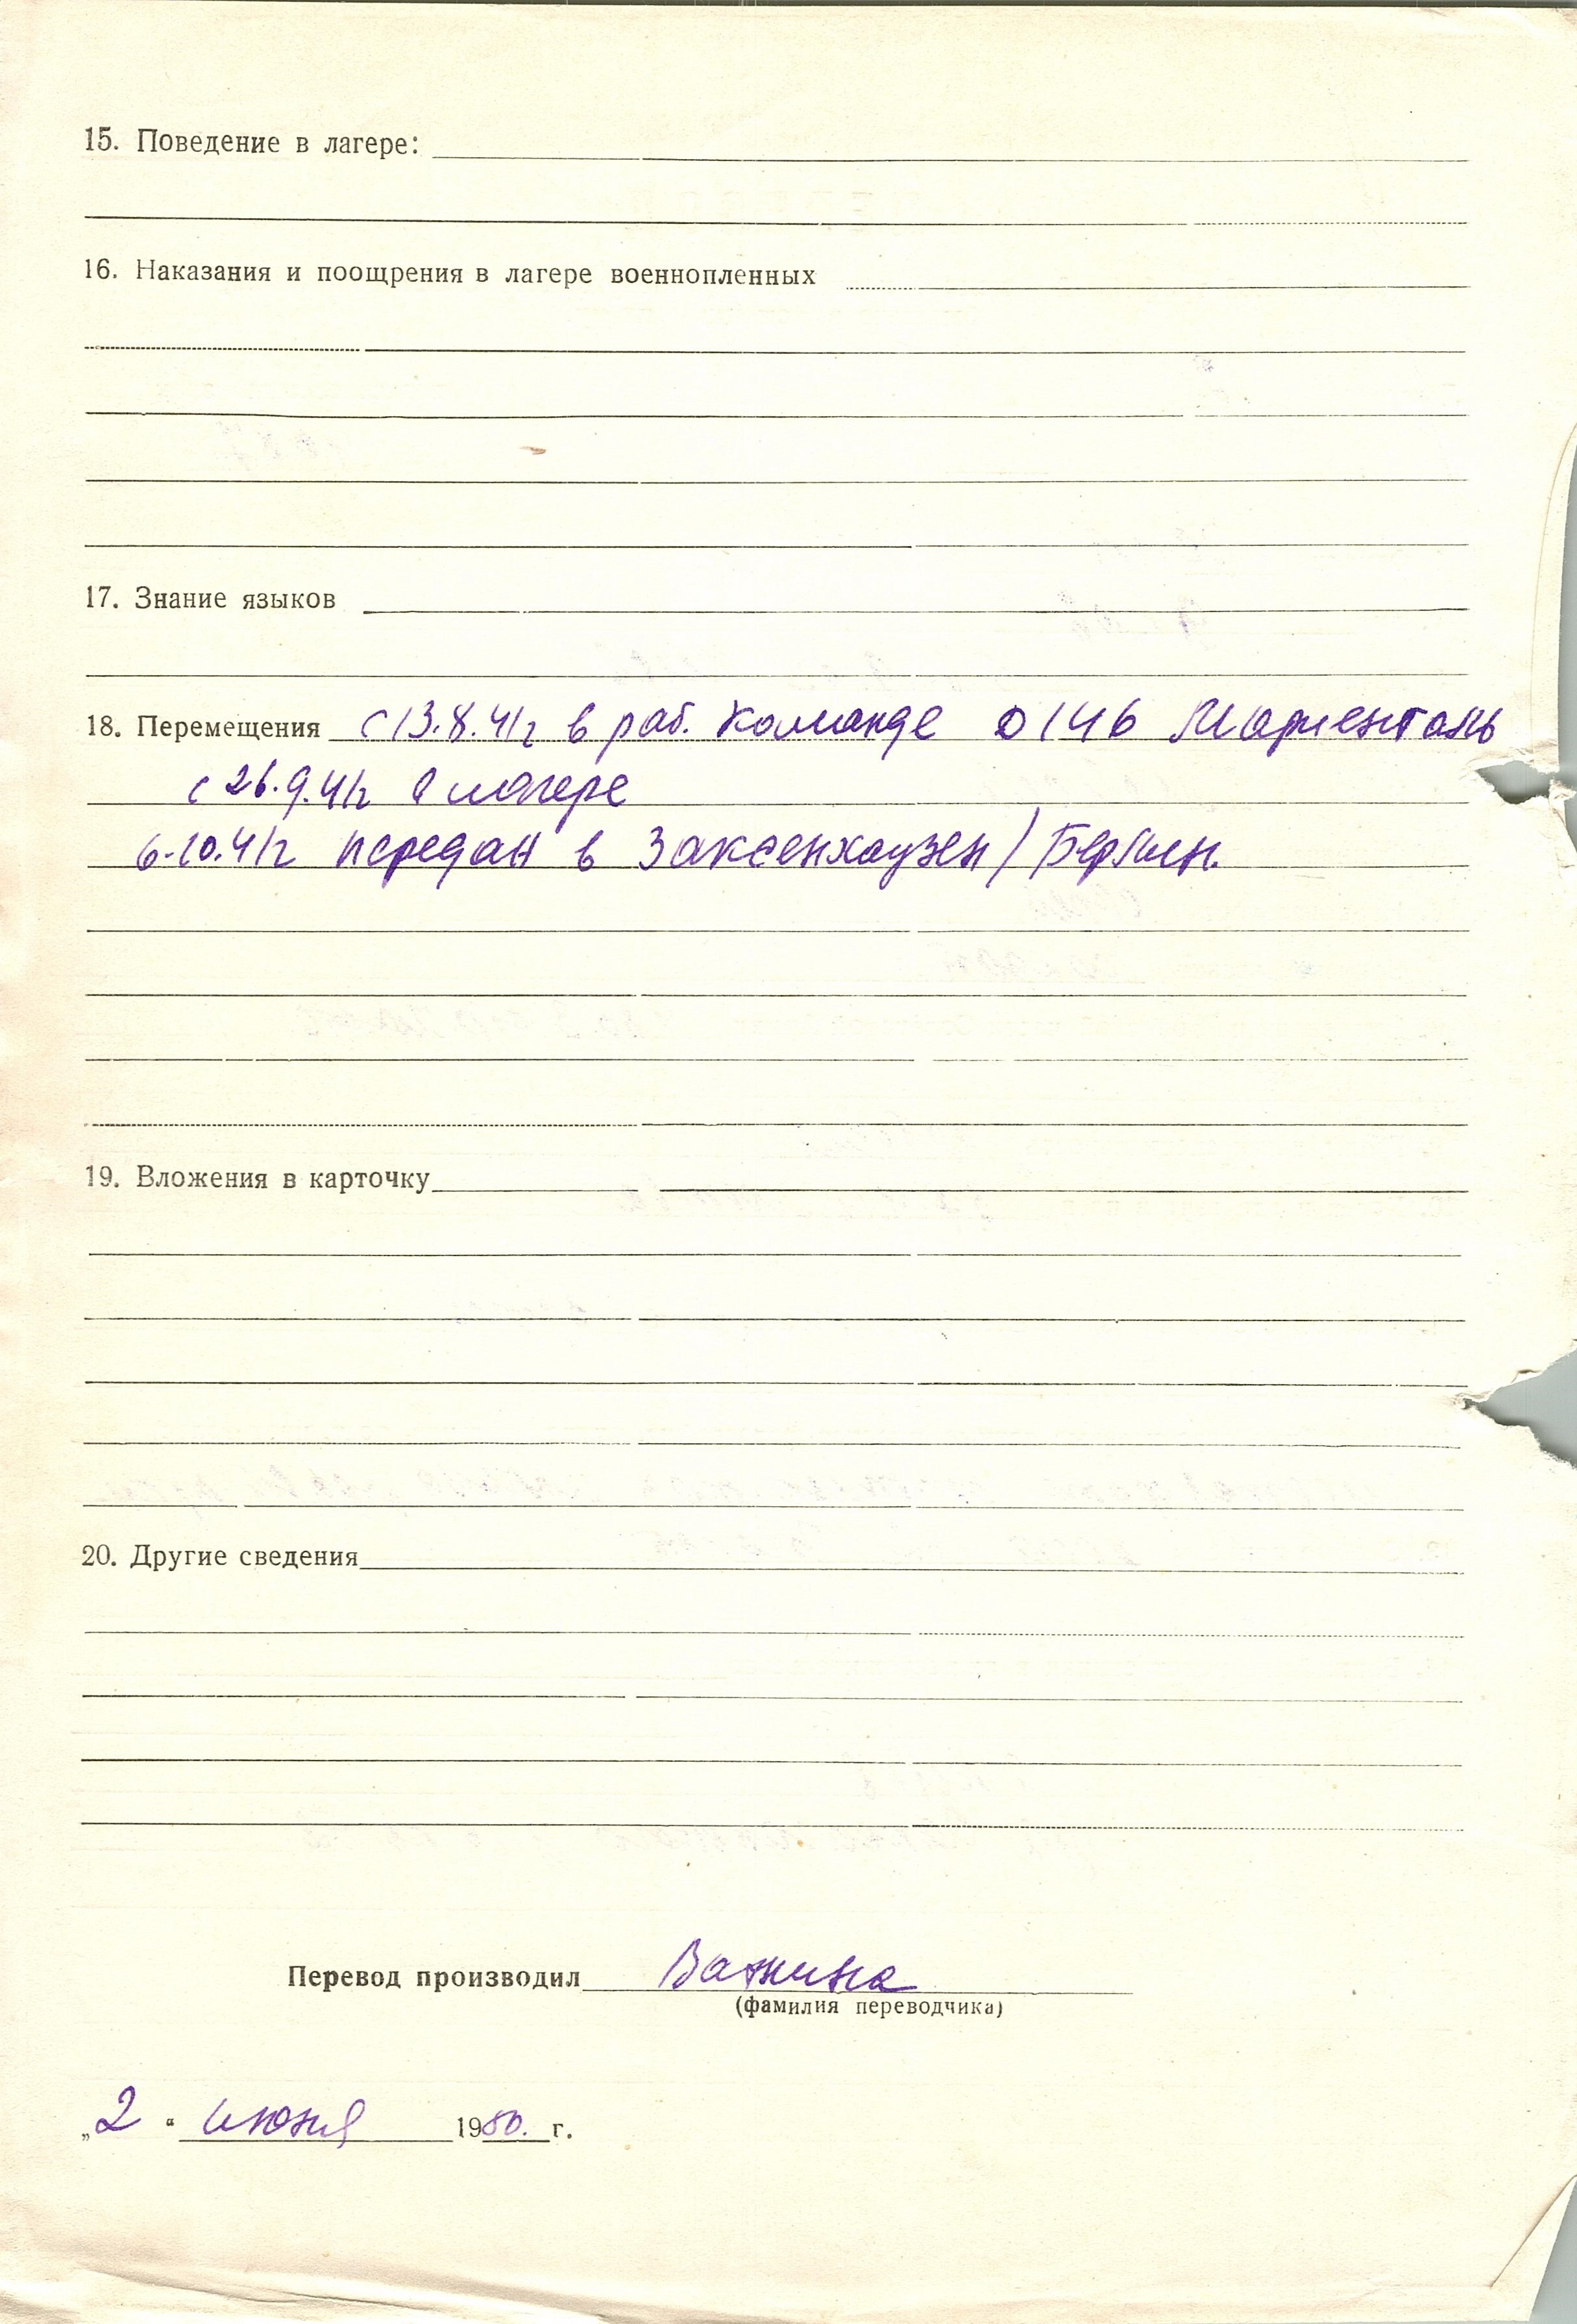 15. Поведение в лагере:
16. Наказания и поощрения в лагере военнопленных
17. Знание языков
18. Перемещения с 13.8.41г в раб. команде D 146 Мариенталь
с 26.9.41г в лагере
6.10.41г передан в Заксенхаузен / Берлин.
19. Вложения в карточку
20. Другие сведения
Перевод производил
(фамилия переводчика)
„2“ июня 1950. г.